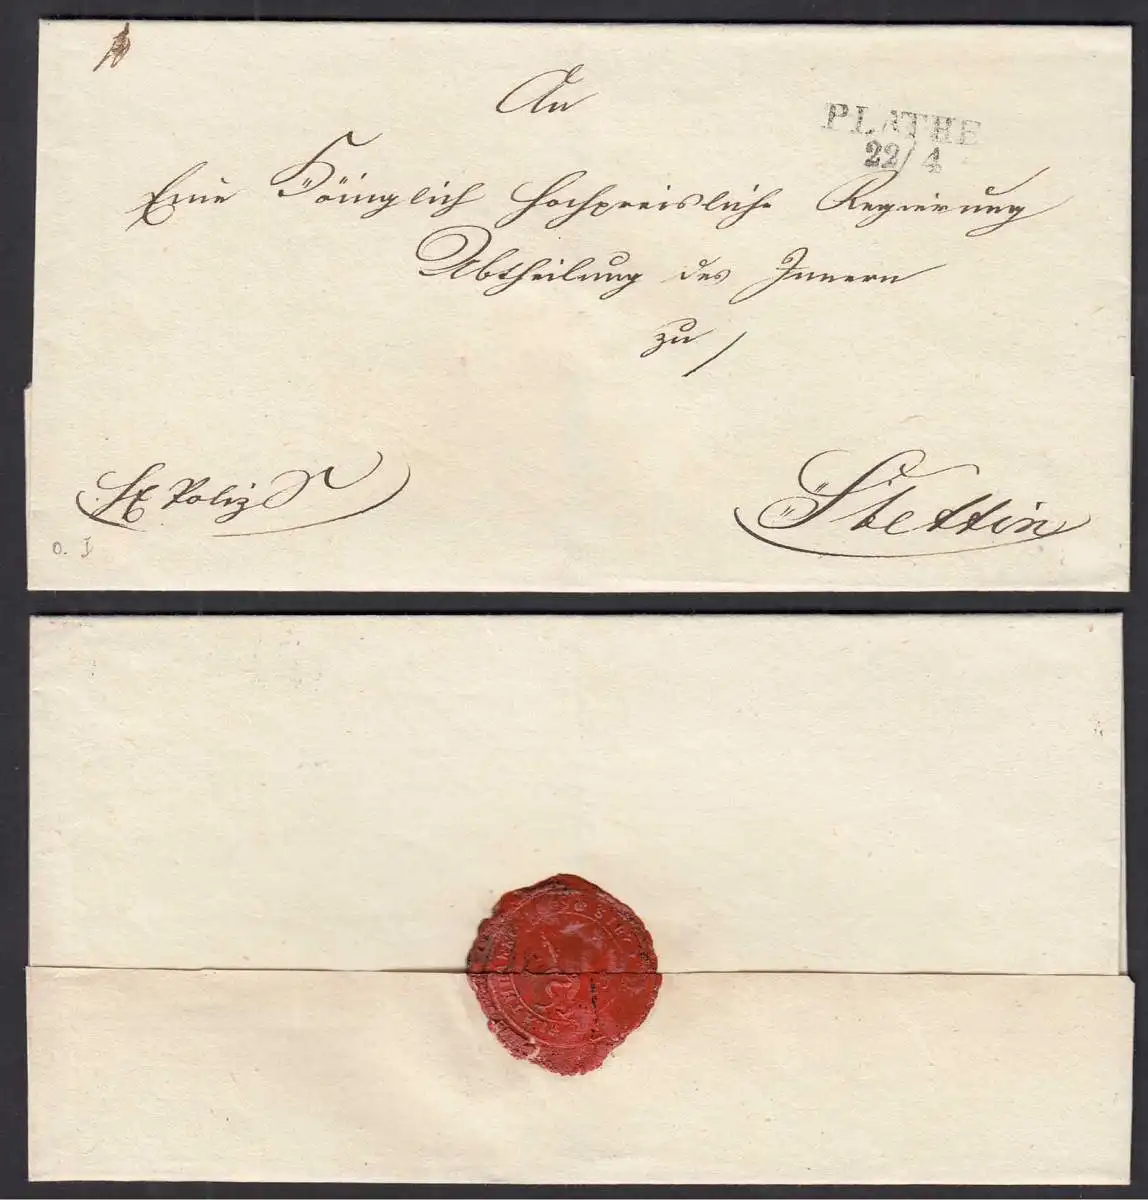 An
PLATHE
22/4
Eine Königlich Hochpreisliche Regierung
Abtheilung des Innern
zu
Stettin
Poliz
o. I